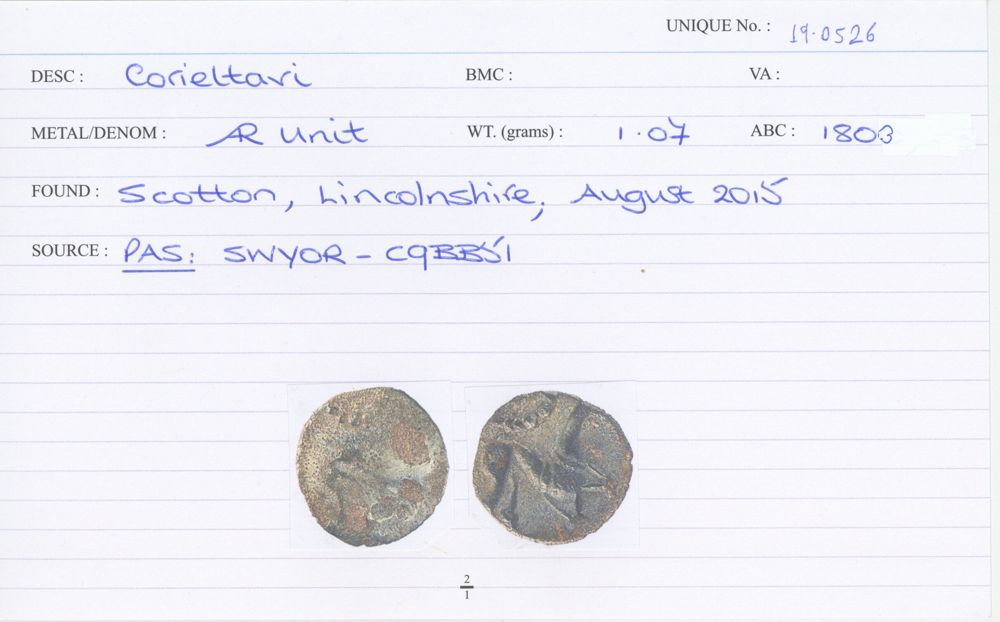 UNIQUE No. : 19.0526
DESC : Corieltavi BMC : VA :
METAL/DENOM : AR Unit WT. (grams) : 1.07 ABC : 1803
FOUND : Scotton, Lincolnshire, August 2015
SOURCE : PAS: SWYOR - C9BB51
2
1